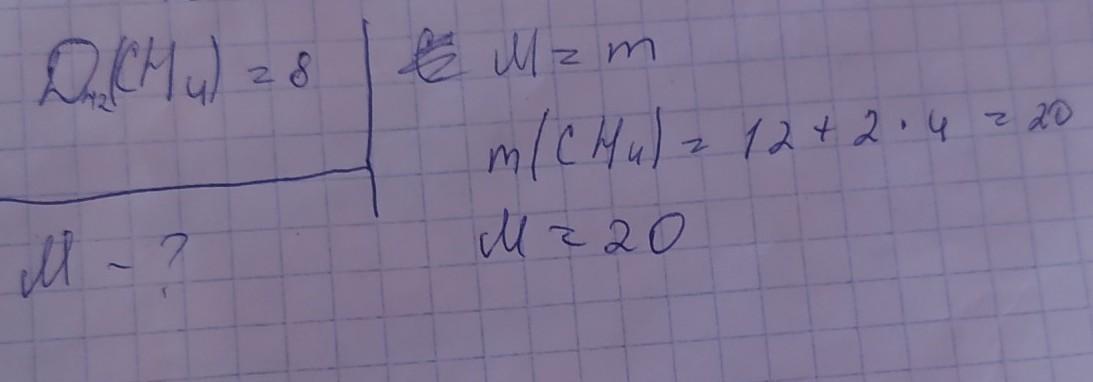 D_H2(CH4) = 8
M = m
m(CH4) = 12 + 2 · 4 = 20
M - ?
M = 20